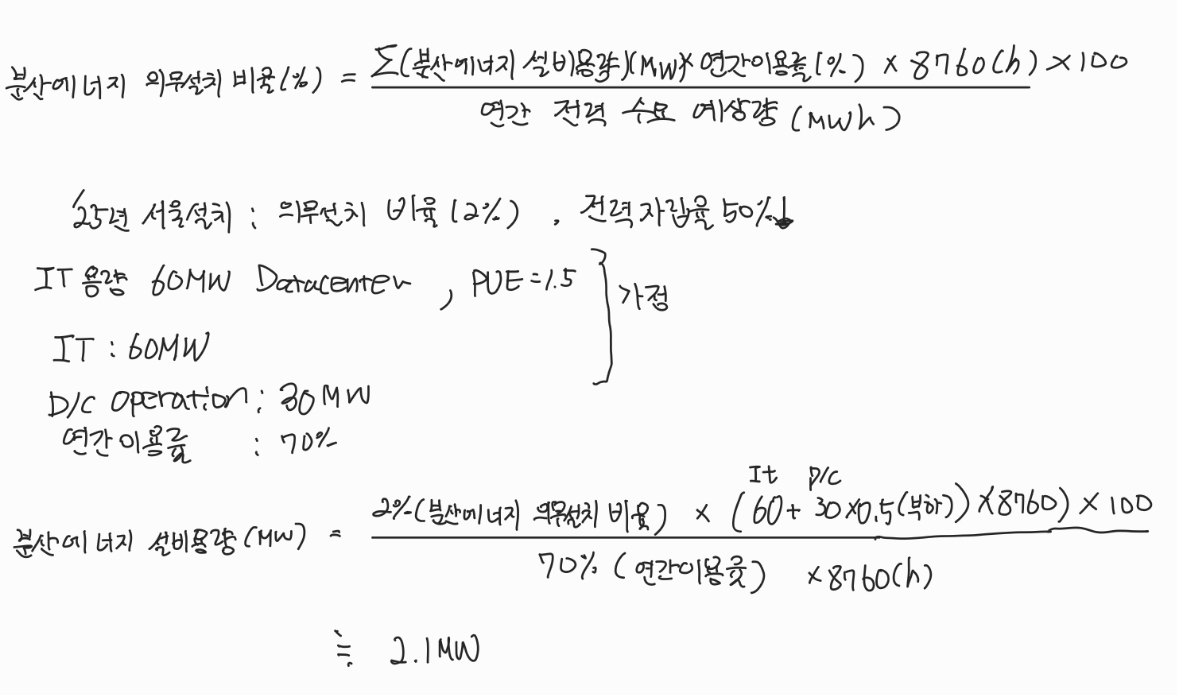 분산에너지 의무설치 비율(%) = Σ(분산에너지 설비용량)(MW)× 연간이용률(%) × 8760(h) ×100
연간 전력 수요 예상량 (MWh)
'25년 서울설치 : 의무설치 비율(2%) , 전력자립율 50%↓
IT 용량 60MW Datacenter , PUE=1.5 } 가정
IT : 60MW
D/C Operation : 30MW
연간이용률 : 70%
It D/C
분산에너지 설비용량(MW) = 2%(분산에너지 의무설치 비율) × (60+ 30×0.5(부하))×8760) × 100
70% (연간이용률) ×8760(h)
≒ 2.1MW